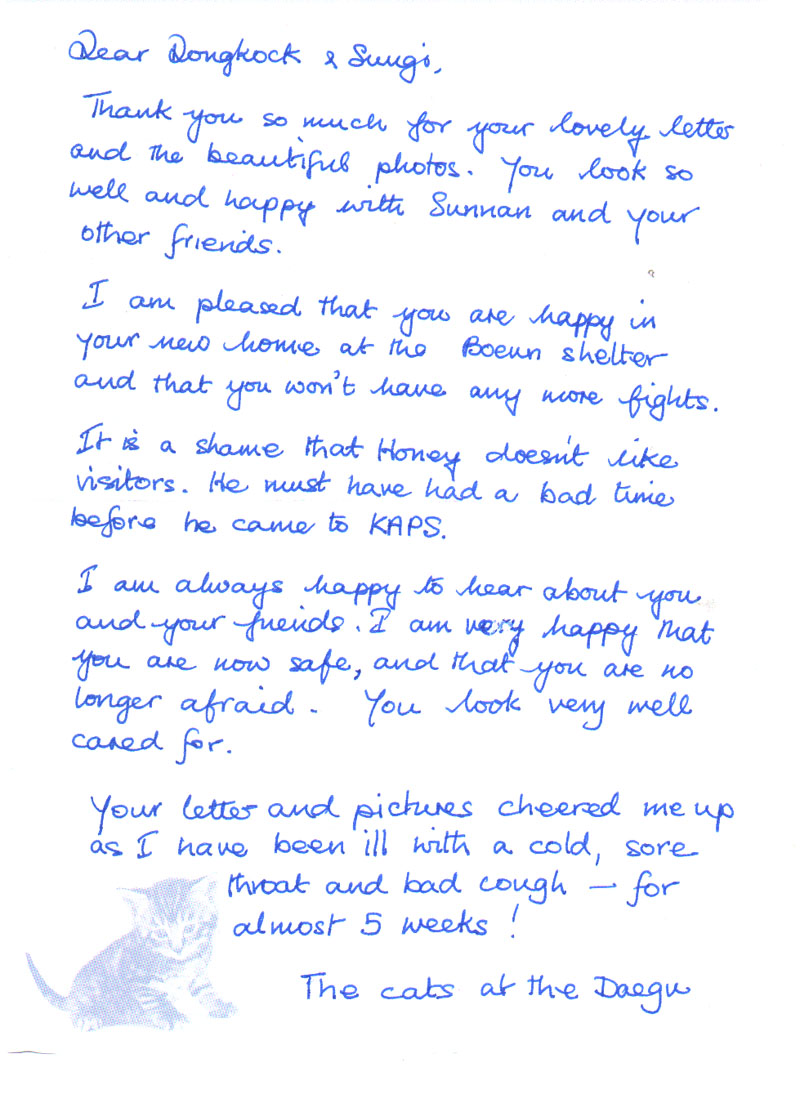 Dear Dongkock & Sungi,
Thank you so much for your lovely letter
and the beautiful photos. You look so
well and happy with Sunnan and your
other friends.
I am pleased that you are happy in
your new home at the Boeun shelter
and that you won't have any more fights.
It is a shame that Honey doesn't like
visitors. He must have had a bad time
before he came to KAPS.
I am always happy to hear about you
and your friends. I am very happy that
you are now safe, and that you are no
longer afraid. You look very well
cared for.
Your letter and pictures cheered me up
as I have been ill with a cold, sore
throat and bad cough – for
almost 5 weeks!
The cats at the Daegu